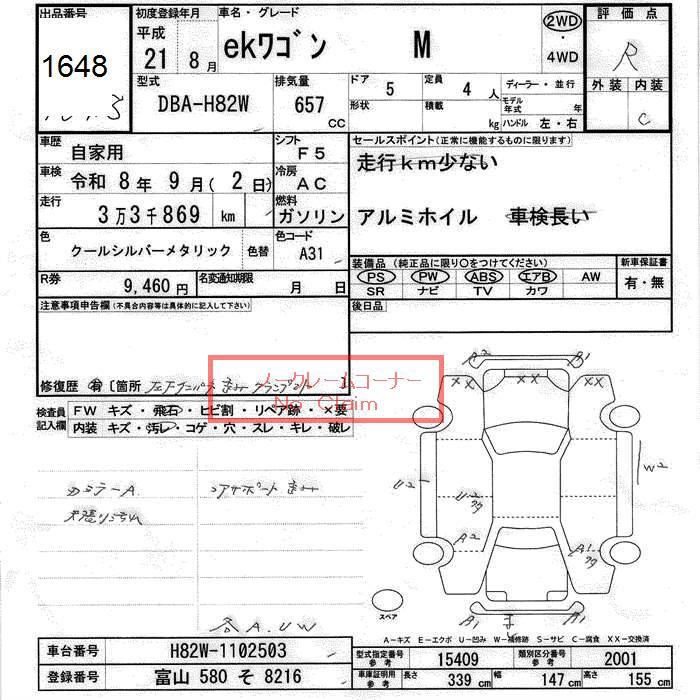 出品番号
1648
初度登録年月
平成
21 8月
車名・グレード
ekワゴン M
2WD
・
4WD
評価点
R
外装 内装
C
型式
DBA-H82W
排気量
657
CC
ドア 5
形状
定員 4 人
積載 kg
ディーラー・並行
モデル年式 年
ハンドル 左・右
車歴
自家用
シフト
F5
車検
令和 8年 9月(2日)
冷房
AC
走行
3万3千869 km
燃料
ガソリン
色
クールシルバーメタリック 色替
色コード
A31
R券
9,460円
名変通知期限
月 日
セールスポイント(正常に機能するものに限ります)
走行km少ない
アルミホイル 車検長い
装備品(純正品に限り○をつけてください)
PS PW ABS エアB AW
SR ナビ TV カワ
新車保証書
有・無
後日品
注意事項申告欄(不具合内容等は具体的に記入して下さい)
修復歴 有 〔箇所
ノークレームコーナー
No Claim
検査員
記入欄
FW キズ・飛石・ヒビ割・リペア跡・×要
内装 キズ・汚レ・コゲ・穴・スレ・キレ・破レ
A2 A1
XX XX
U2
U2
A2
A1
W2
A1 A1
スペア
A-キズ E-エクボ U-凹み W-補修跡 S-サビ C-腐食 XX-交換済
車台番号
H82W-1102503
登録番号
富山 580 そ 8216
型式指定番号
参考
15409
類別区分番号
参考
2001
車庫証明用
参考
長さ 339 cm 幅 147 cm 高さ 155 cm